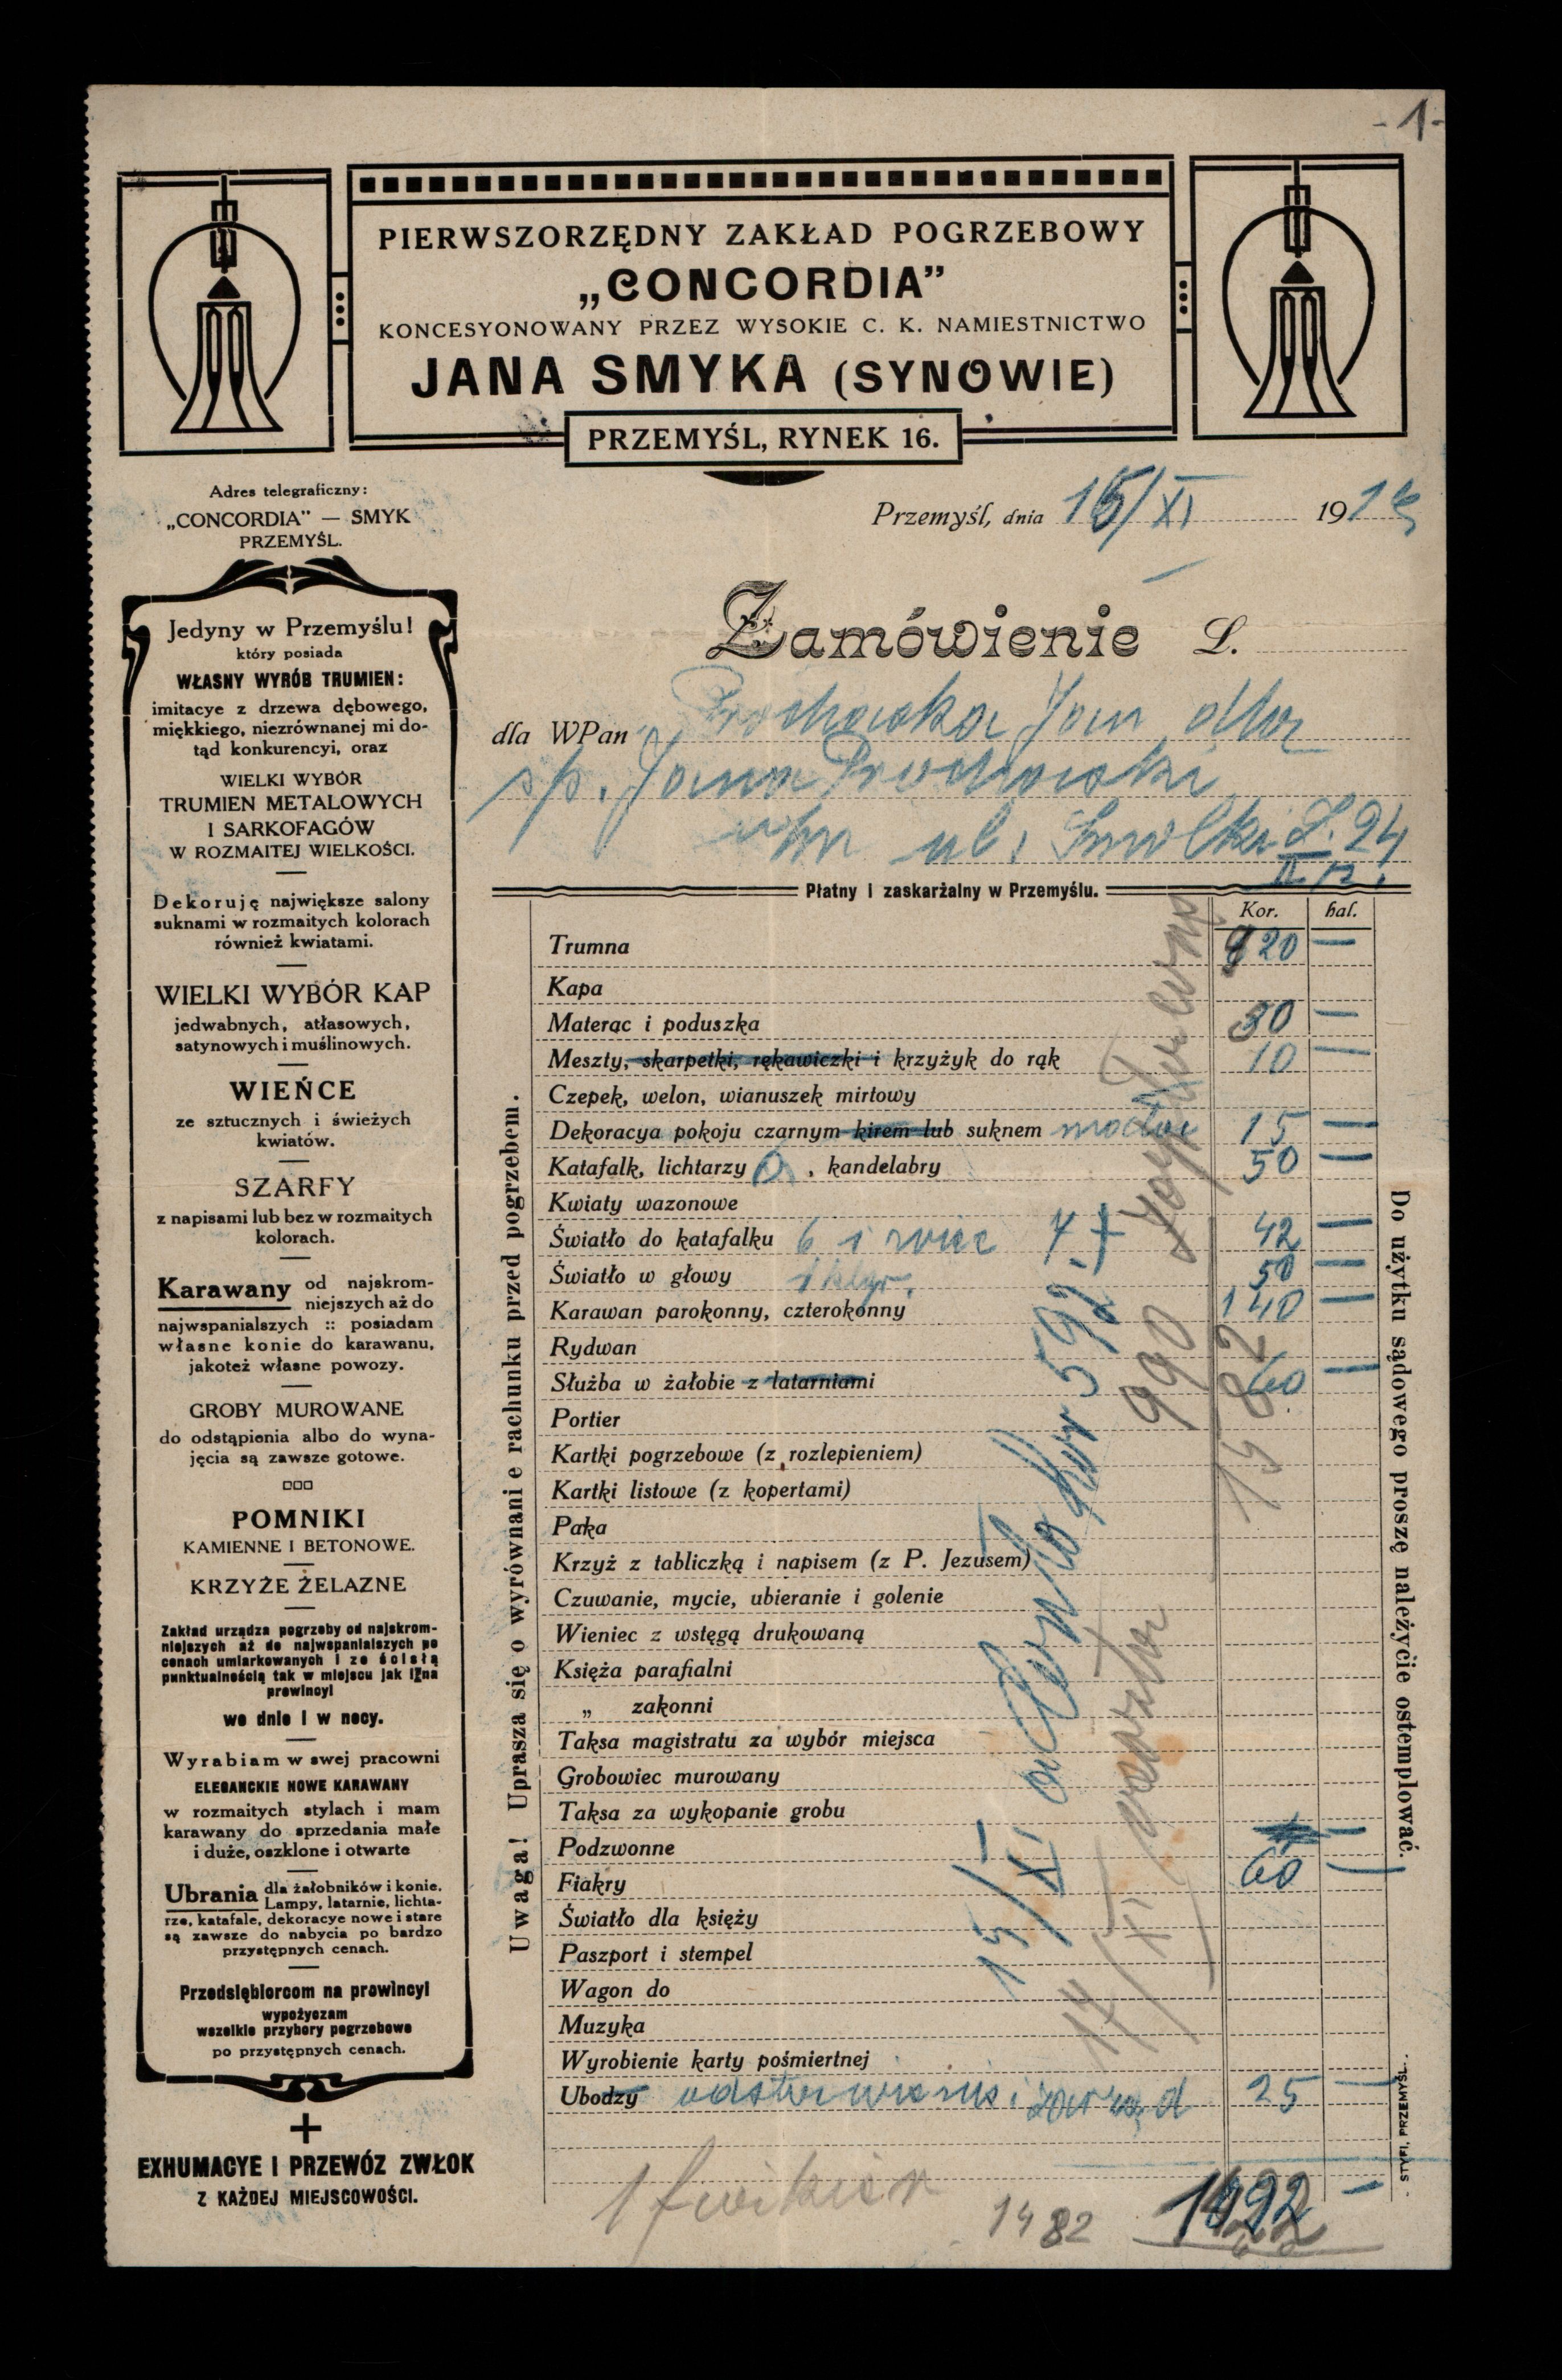 - 1 -
PIERWSZORZĘDNY ZAKŁAD POGRZEBOWY
„CONCORDIA”
KONCESYONOWANY PRZEZ WYSOKIE C. K. NAMIESTNICTWO
JANA SMYKA (SYNOWIE)
PRZEMYŚL, RYNEK 16.
Adres telegraficzny:
„CONCORDIA” — SMYK
PRZEMYŚL.
Jedyny w Przemyślu!
który posiada
WŁASNY WYRÓB TRUMIEN:
imitacye z drzewa dębowego,
miękkiego, niezrównanej mi do-
tąd konkurencyi, oraz
WIELKI WYBÓR
TRUMIEN METALOWYCH
I SARKOFAGÓW
W ROZMAITEJ WIELKOŚCI.
Dekoruję największe salony
suknami w rozmaitych kolorach
również kwiatami.
WIELKI WYBÓR KAP
jedwabnych, atłasowych,
satynowych i muślinowych.
WIEŃCE
ze sztucznych i świeżych
kwiatów.
SZARFY
z napisami lub bez w rozmaitych
kolorach.
Karawany od najskrom-
niejszych aż do
najwspanialszych :: posiadam
własne konie do karawanu,
jakoteż własne powozy.
GROBY MUROWANE
do odstąpienia albo do wyna-
jęcia są zawsze gotowe.
POMNIKI
KAMIENNE I BETONOWE.
KRZYŻE ŻELAZNE
Zakład urządza pogrzeby od najskrom-
niejszych aż do najwspanialszych po
cenach umiarkowanych i ze ścisłą
punktualnością tak w miejscu jak i na
prowincyi
we dnie i w nocy.
Wyrabiam w swej pracowni
ELEGANCKIE NOWE KARAWANY
w rozmaitych stylach i mam
karawany do sprzedania małe
i duże, oszklone i otwarte
Ubrania dla żałobników i konie.
Lampy, latarnie, lichta-
rze, katafale, dekoracye nowe i stare
są zawsze do nabycia po bardzo
przystępnych cenach.
Przedsiębiorcom na prowincyi
wypożyczam
wszelkie przybory pogrzebowe
po przystępnych cenach.
EXHUMACYE I PRZEWÓZ ZWŁOK
Z KAŻDEJ MIEJSCOWOŚCI.
Przemyśl, dnia 15/XI 191
Zamówienie L.
dla WPan Prochaska Jan dla
ś/p. Jana Prochaski
ul. Smolki L. 24
II p.
Płatny i zaskarżalny w Przemyślu.
Kor. hal.
Trumna 920 —
Kapa
Materac i poduszka 30 —
Meszty, skarpetki, rękawiczki i krzyżyk do rąk 10 —
Czepek, welon, wianuszek mirtowy
Dekoracya pokoju czarnym kirem lub suknem 15 —
Katafalk, lichtarzy , kandelabry 50 —
Kwiaty wazonowe
Światło do katafalku 6 i świec 42 —
Światło w głowy 50 —
Karawan parokonny, czterokonny 140 —
Rydwan
Służba w żałobie z latarniami 60 —
Portier
Kartki pogrzebowe (z rozlepieniem)
Kartki listowe (z kopertami)
Paka
Krzyż z tabliczką i napisem (z P. Jezusem)
Czuwanie, mycie, ubieranie i golenie
Wieniec z wstęgą drukowaną
Księża parafialni
„ zakonni
Taksa magistratu za wybór miejsca
Grobowiec murowany
Taksa za wykopanie grobu
Podzwonne
Fiakry 60 —
Światło dla księży
Paszport i stempel
Wagon do
Muzyka
Wyrobienie karty pośmiertnej
Ubodzy i zarząd 25 —
1482
Uwaga! Uprasza się o wyrównanie rachunku przed pogrzebem.
Do użytku sądowego proszę należycie ostemplować.
15/XI a Conto Kor 592
17/XI
990
1482
STYFI, PRZEMYŚL.